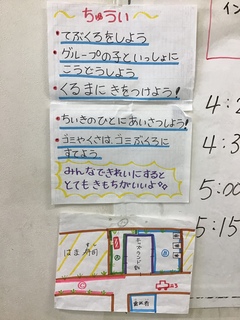 ちゅうい
・てぶくろをしよう
・グループの子といっしょに
こうどうしよう
・くるまに きをつけよう!
・ちいきのひとにあいさつしよう!
・ゴミやくさは、ゴミぶくろに
すてよう
みんなできれいにすると
とてもきもちがいいよ
イン
4:2
4:3
5:00
5:15